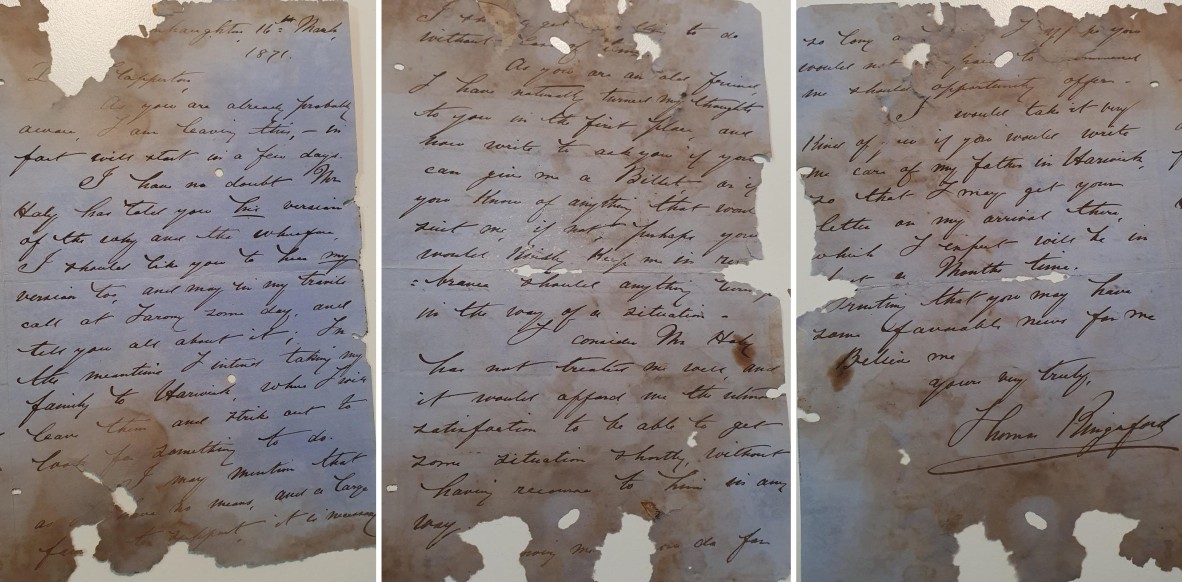 16th March
1871.
As you are already probably
aware, I am leaving this, – in
fact will start in a few days.
I have no doubt Mr
Haly has told you his version
of the why and the wherefore.
I should like you to hear my
version too, and may in my travels
call at some day, and
tell you all about it; In
the meantime I intend taking my
family to Warwick, where I will
leave them and strike out to
look for something to do.
I may mention that
a have no means, and a large
to support, it is necessary
I to do
without
As you are an old friend
I have naturally turned my thoughts
to you in the first place, and
now write to ask you if you
can give me a Billet or if
you know of anything that would
suit me, if not, perhaps you
would kindly keep me in rem
= brance should anything turn up
in the way of a situation –
I consider Mr Haly
has not treated me well and
it would afford me the utmost
satisfaction to be able to get
some situation shortly, without
having recourse to him in any
way.
do for
so long a you
would not to
me should opportunity offer. –
I would take it very
kind of you if you would write
me care of my father in Warwick
so that I may get your
letter on my arrival there,
which I expect will be in
a Months time.
Trusting that you may have
some favourable news for me
Believe me
yours very truly,
Thomas Bingaford